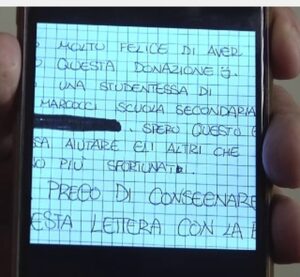 MOLTO FELICE DI AVER
QUESTA DONAZIONE
UNA STUDENTESSA DI
MARCOCCI SCUOLA SECONDARIA
. SPERO QUESTO
AIUTARE GLI ALTRI CHE
PIÙ SFORTUNATI.
PREGO DI CONSEGNARE
ESTA LETTERA CON LA